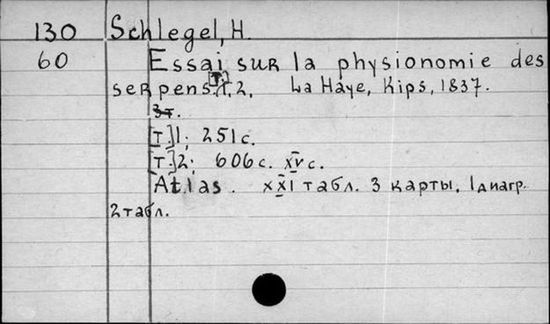 130 Schlegel, H.
60 Essai sur la physionomie des
serpens. [T.] 1, 2. La Haye, Kips, 1837.
3т.
[т.] 1; 251 с.
[т.] 2; 606 с. xv с.
Atlas. xxI табл. 3 карты, 1 диагр.
2 табл.